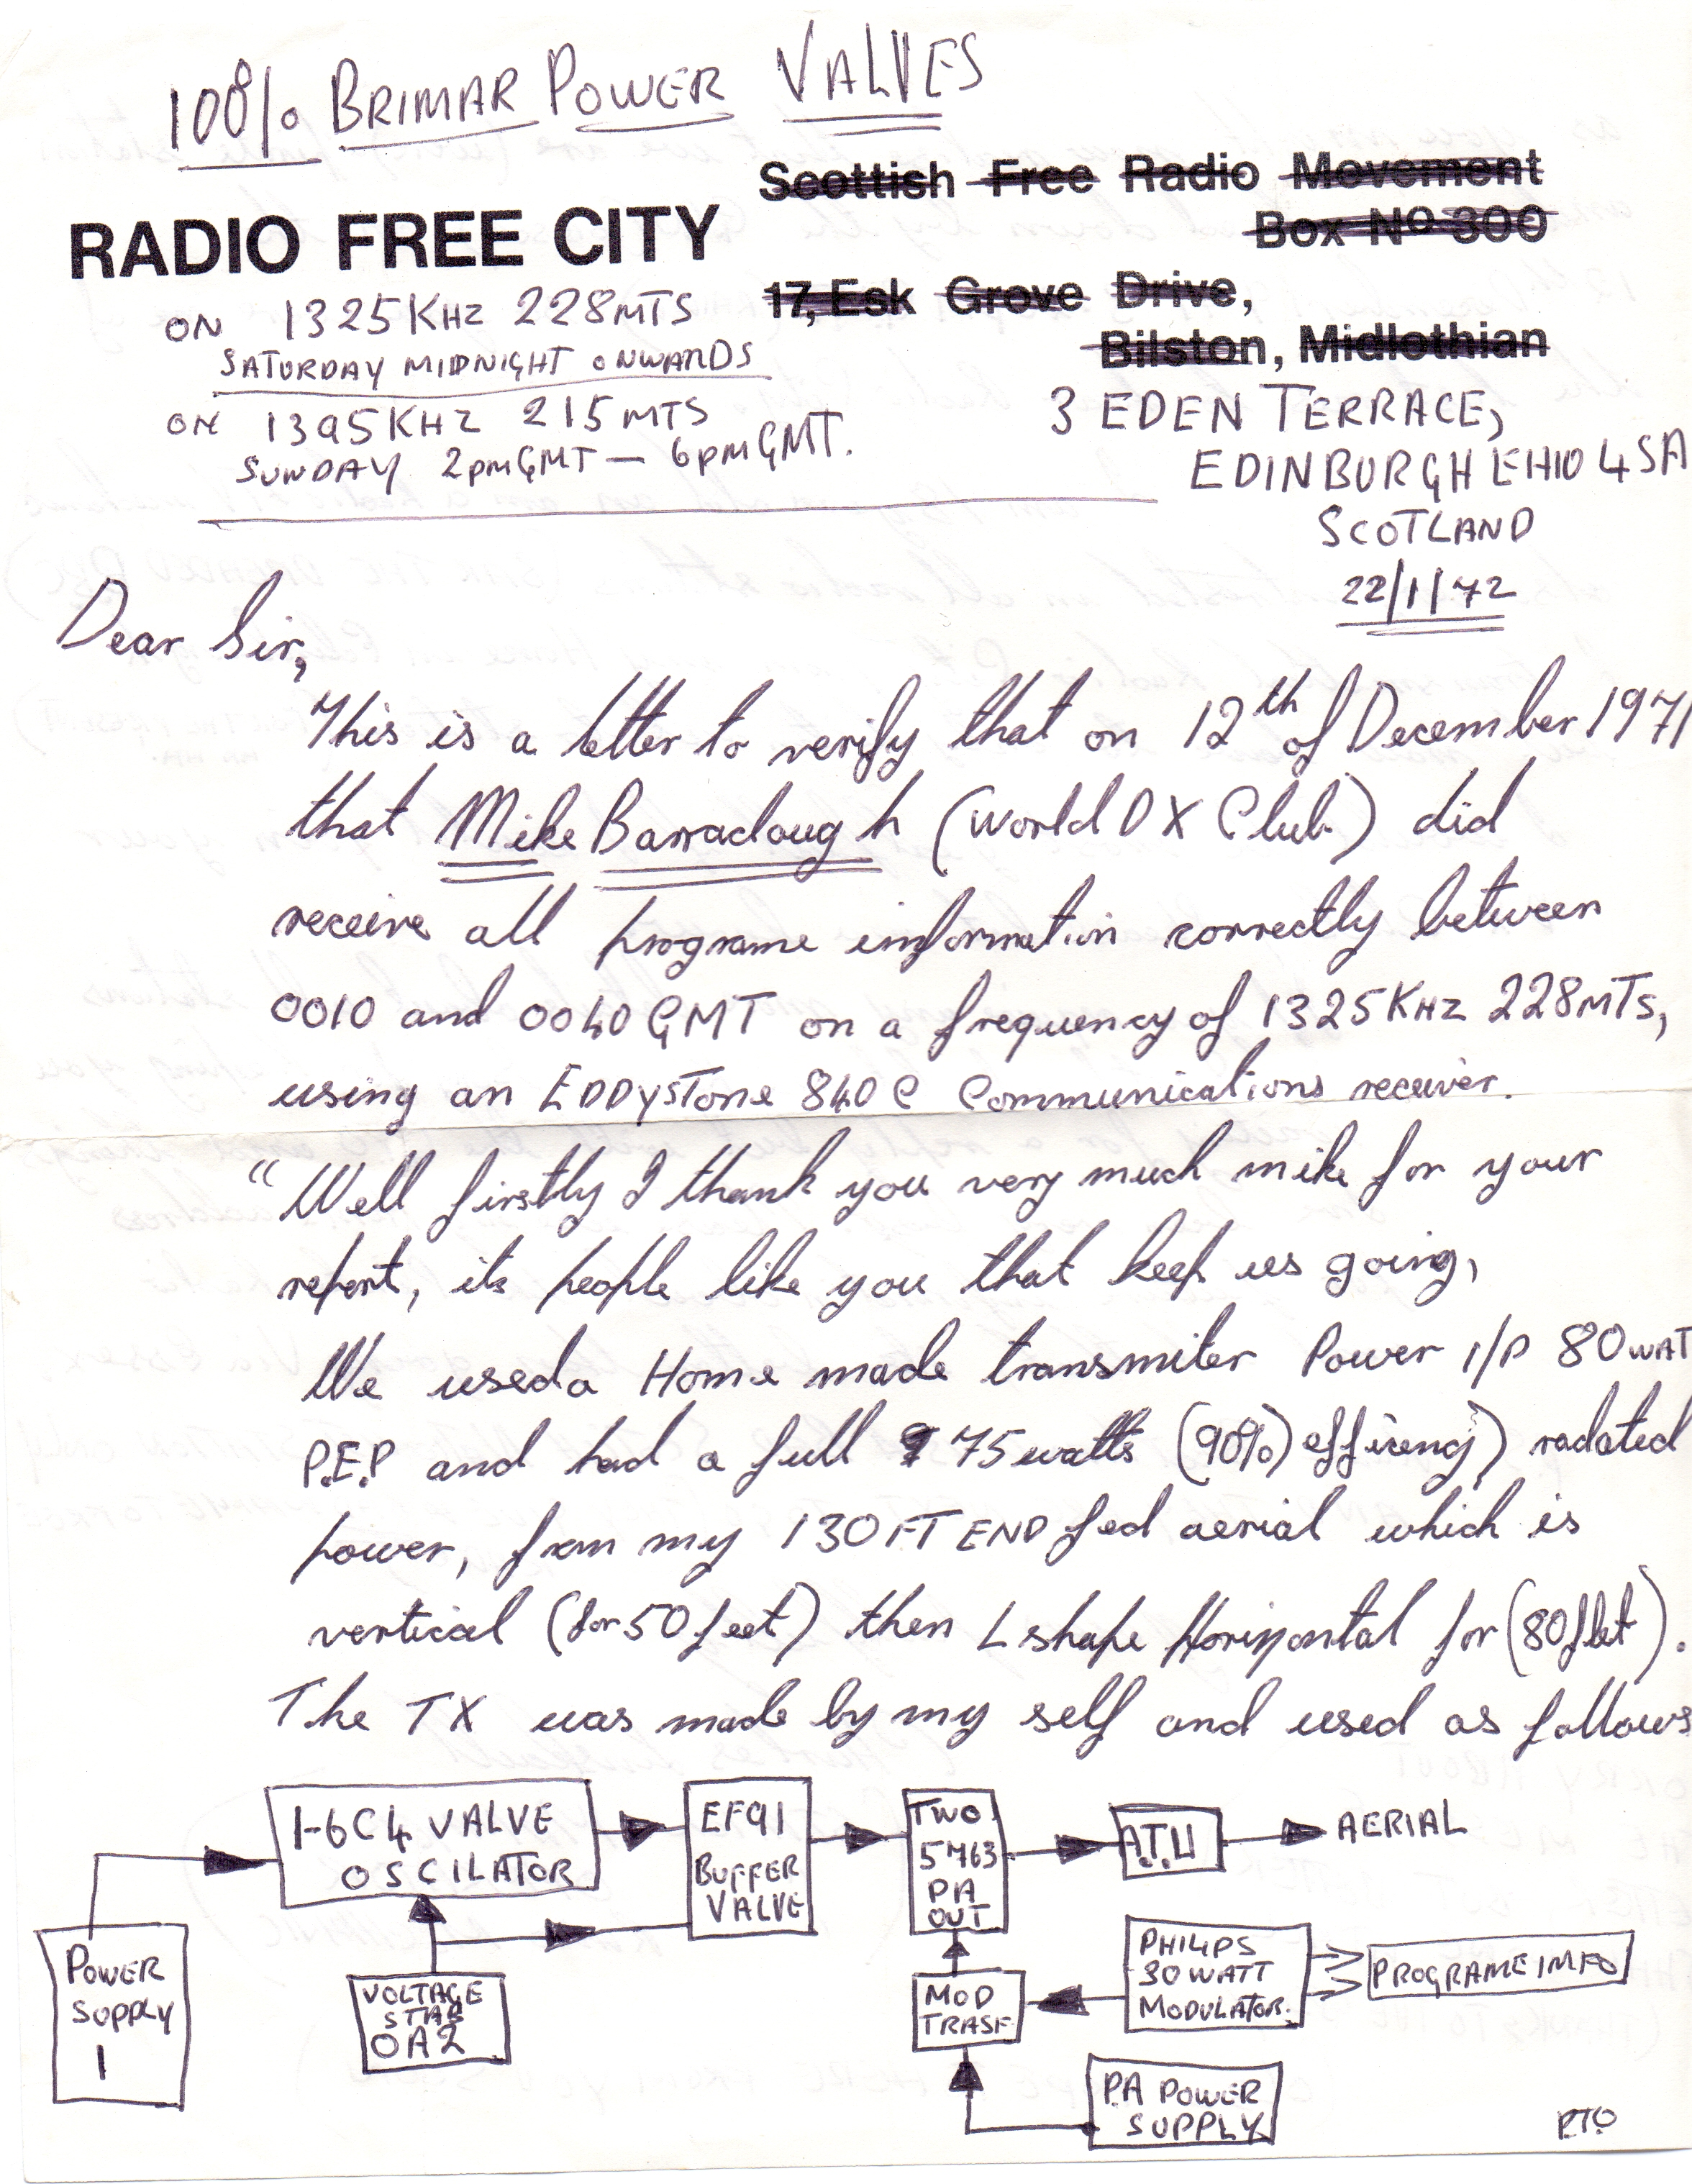 100% BRIMAR POWER VALVES
Scottish Free Radio Movement
Box Nº 300
RADIO FREE CITY
17, Esk Grove Drive,
Bilston, Midlothian
ON 1325 KHZ 228 MTS
SATURDAY MIDNIGHT ONWARDS
ON 1395 KHZ 215 MTS
SUNDAY 2pm GMT — 6pm GMT.
3 EDEN TERRACE,
EDINBURGH EH10 4SA
SCOTLAND
22/1/72
Dear Sir,
This is a letter to verify that on 12th of December 1971
that Mike Barraclough (World DX Club) did
receive all programe information correctly between
0010 and 0040 GMT on a frequency of 1325 KHZ 228 MTS,
using an EDDYSTONE 840 C Communications receiver.
"Well firstly I thank you very much mike for your
report, its people like you that keep us going,
We used a Home made transmiter Power I/P 80 WAT
P.E.P and had a full 75 watts (90%) efficency) radated
power, from my 130 FT END fed aerial which is
vertical (for 50 feet) then L shape Horizontal for (80 feet).
The TX was made by my self and used as follows
1-6C4 VALVE
OSCILATOR
EF91
BUFFER
VALVE
TWO
5763
PA
OUT
A.T.U
AERIAL
POWER
SUPPLY
1
VOLTAGE
STAB
OA2
MOD
TRASF
PHILIPS
30 WATT
MODULATOR.
PROGRAME INFO
P.A POWER
SUPPLY
PTO